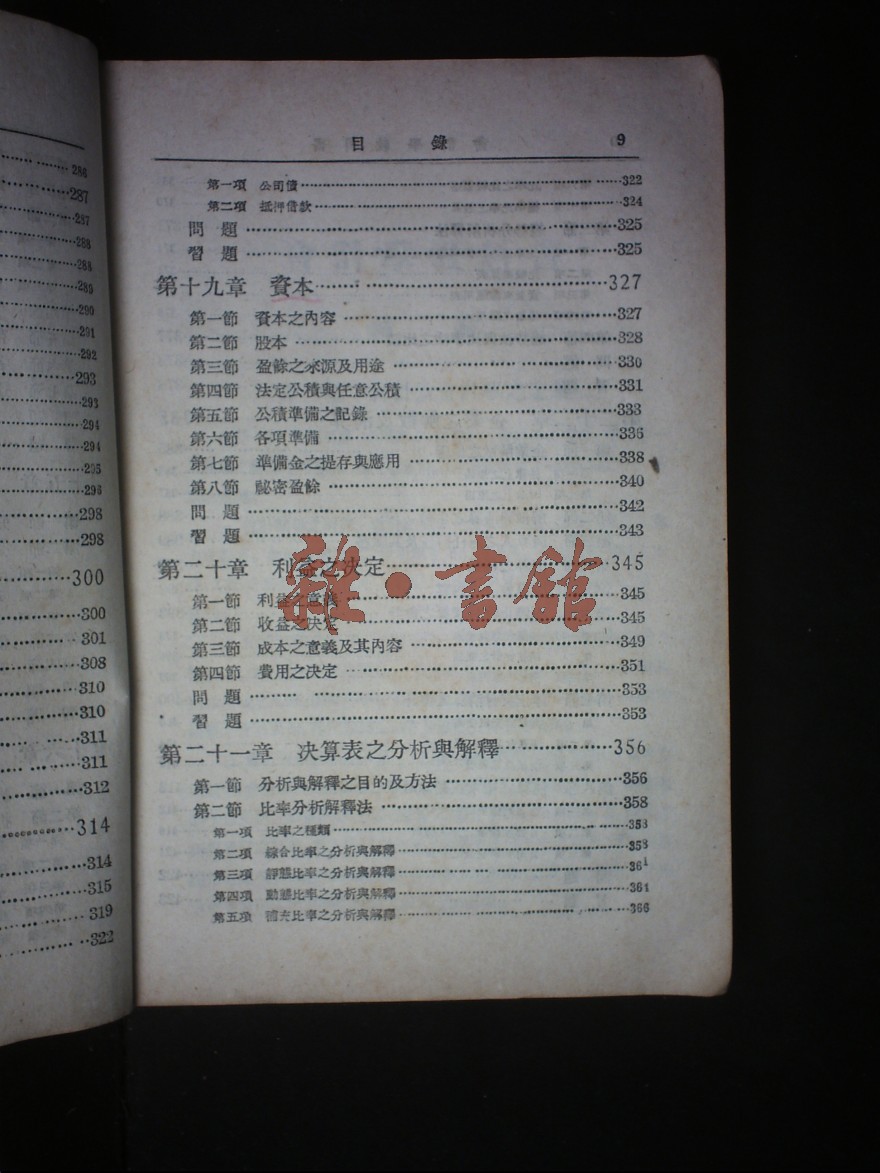 286
287
287
288
288
289
290
291
292
293
293
294
294
295
296
298
298
300
300
301
308
310
310
311
311
312
314
314
315
319
322
目錄 9
第一項 公司債 322
第二項 抵押借款 324
問題 325
習題 325
第十九章 資本 327
第一節 資本之內容 327
第二節 股本 328
第三節 盈餘之來源及用途 330
第四節 法定公積與任意公積 331
第五節 公積準備之記錄 333
第六節 各項準備 336
第七節 準備金之提存與應用 338
第八節 祕密盈餘 340
問題 342
習題 343
第二十章 利益之決定 345
第一節 利益之意義 345
第二節 收益之決定 345
第三節 成本之意義及其內容 349
第四節 費用之決定 351
問題 353
習題 353
雜·書館
第二十一章 決算表之分析與解釋 356
第一節 分析與解釋之目的及方法 356
第二節 比率分析解釋法 358
第一項 比率之種類 358
第二項 綜合比率之分析與解釋 358
第三項 靜態比率之分析與解釋 361
第四項 動態比率之分析與解釋 364
第五項 補充比率之分析與解釋 366